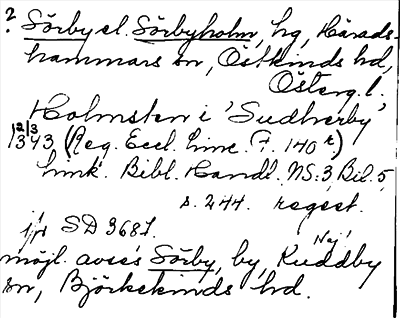 ? Sörby el. Sörbyholm, hg, Härads-
hammars sn, Östkinds hd,
Österg. l.
Holmsten i 'Sudherby'
12/3
1343 (Reg. Eccl. Linc. F. 140 r,)
Link. Bibl. Handl. NS:3, Bil. 5,
s. 244. regest.
jfr SD 3681.
Nej!
möjl. avses Sörby, by, Kuddby
sn, Björkekinds hd.